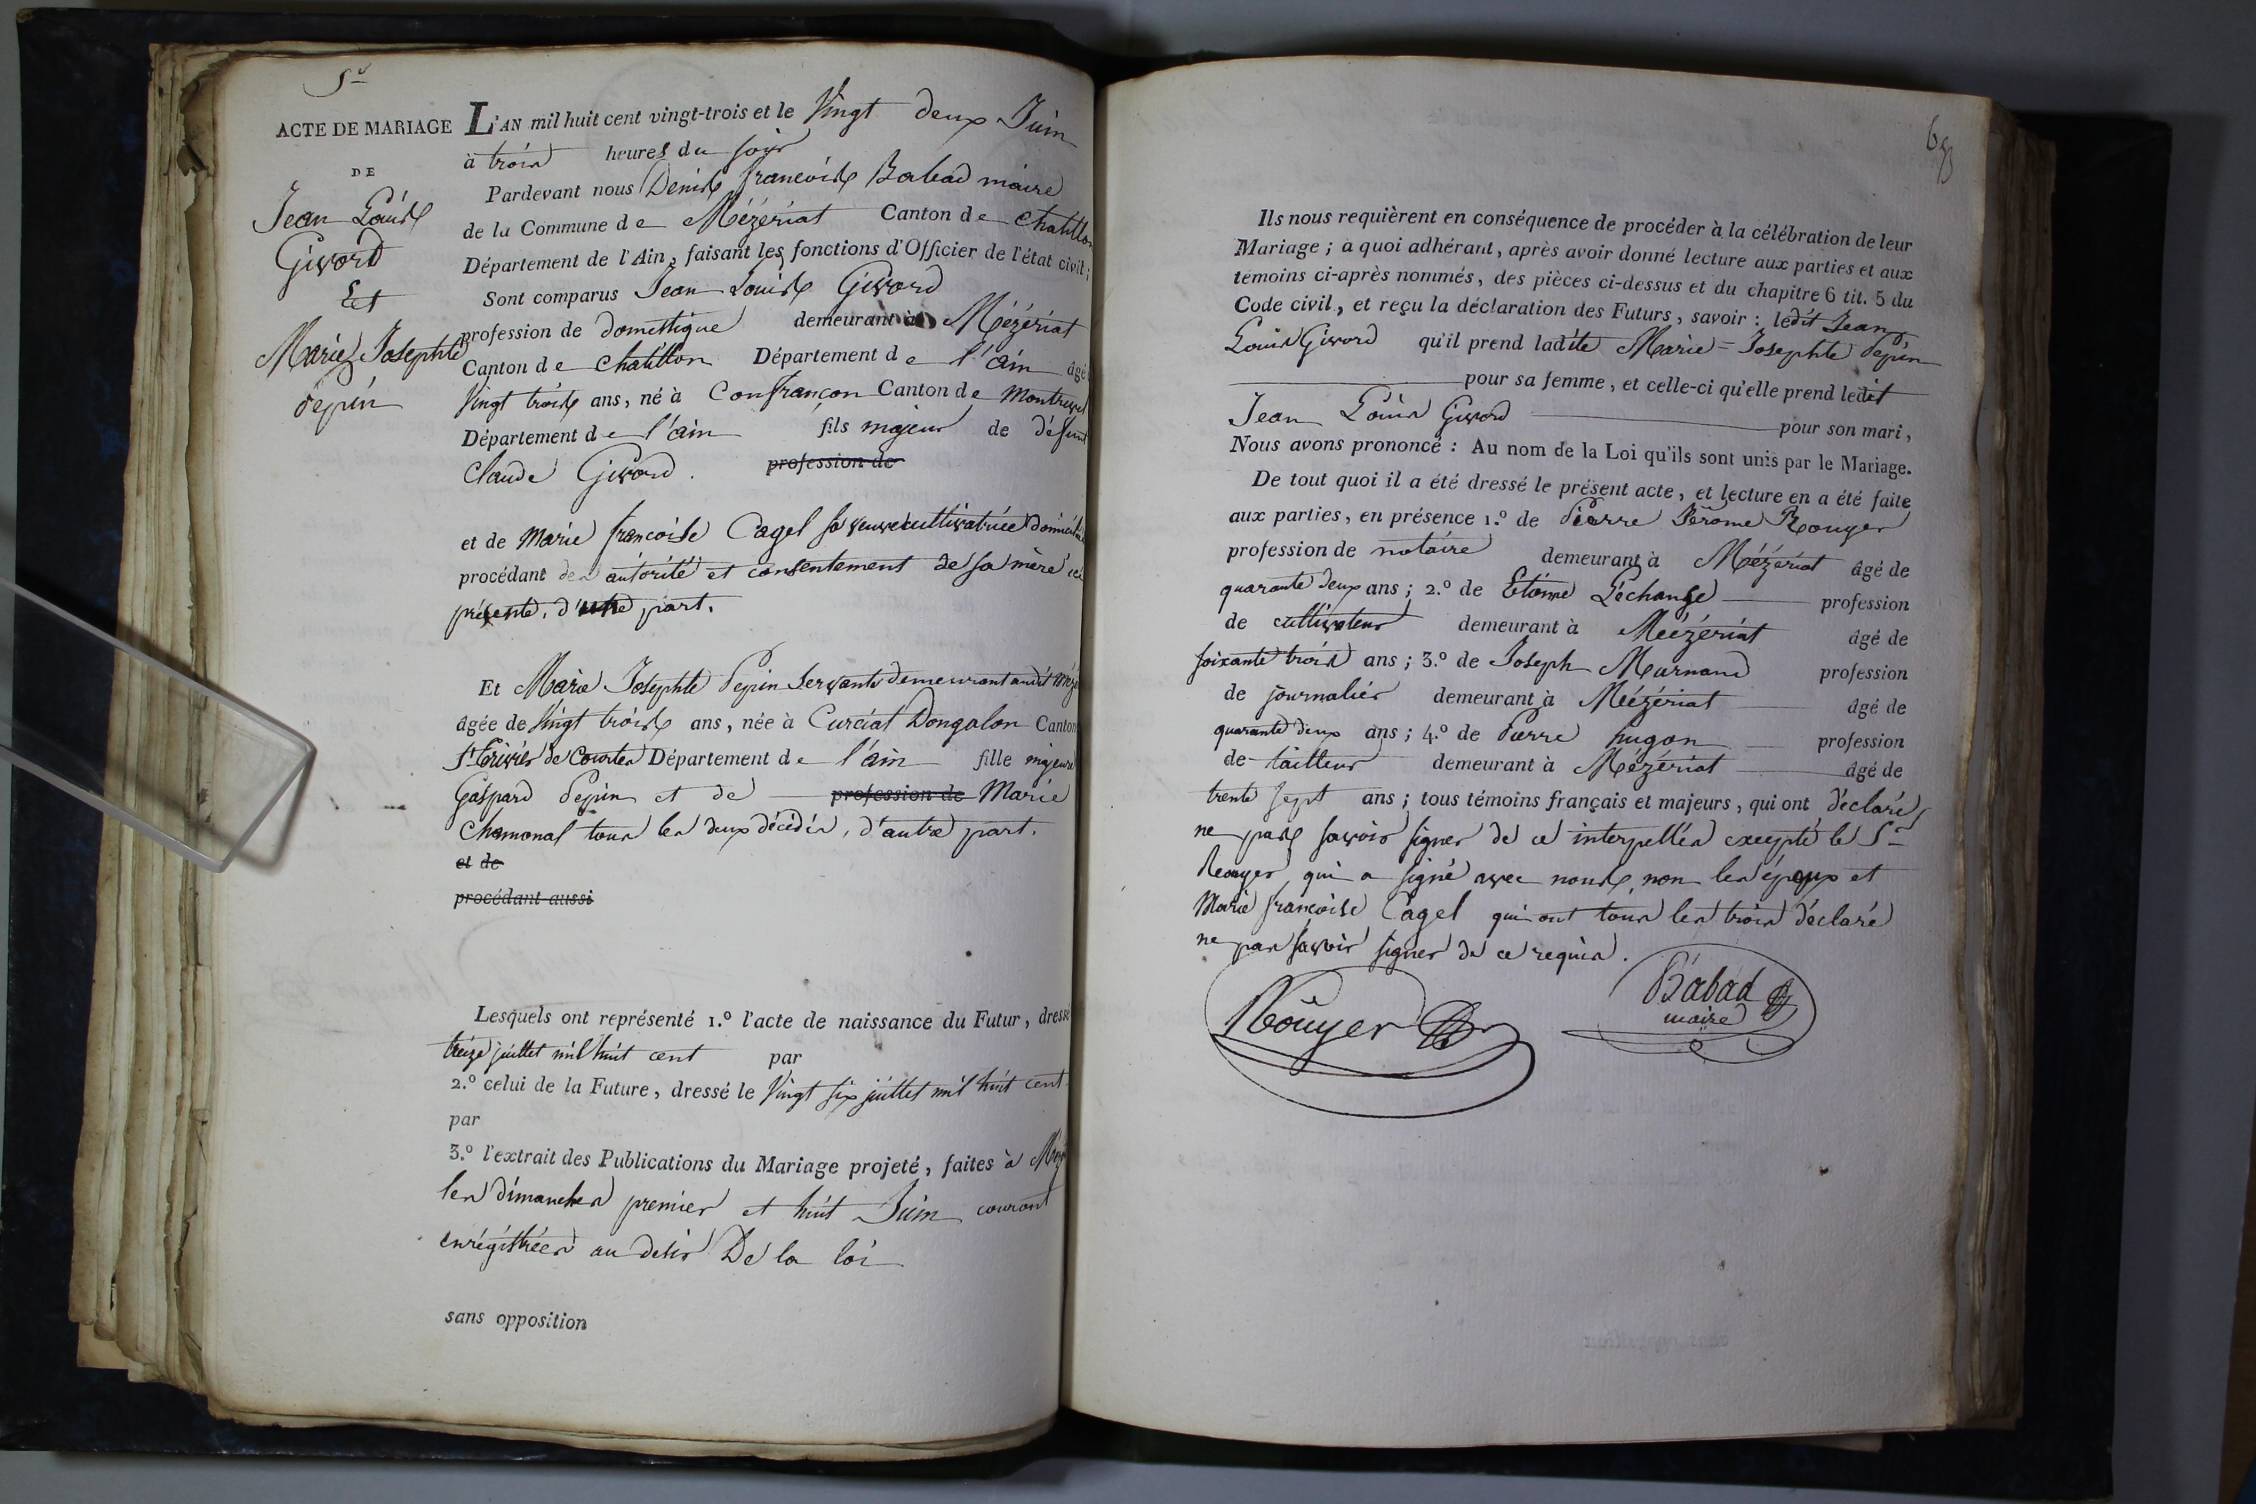 5e
ACTE DE MARIAGE
DE
Jean Louis
Givord
Et
Marie Josephte
Pepin
L'AN mil huit cent vingt-trois et le Vingt deux Juin
à trois heures du soir
Pardevant nous Denis françois Babad maire
de la Commune de Mézériat Canton de Chatillon
Département de l'Ain, faisant les fonctions d'Officier de l'état civil;
Sont comparus Jean Louis Givord
profession de domestique demeurant à Mézériat
Canton de Chatillon Département de l'ain âgé
Vingt trois ans, né à Confrançon Canton de Montrevel
Département de l'ain fils majeur de défunt
Claude Givord. profession de
et de Marie francoise Cagel sa veuve cultivatrice
procédant des autorité et consentement de sa mère ici
présente, d'une part.
Et Marie Josephte Pepin Servante demeurant audit
âgée de Vingt trois ans, née à Curciat Dongalon Canton
St Trivier de Courtes Département de l'ain fille majeure
Gaspard Pepin et de profession de Marie
Chamonal tous les deux décédés, d'autre part.
et de
procédant aussi
Lesquels ont représenté 1.º l'acte de naissance du Futur, dressé
treize juillet mil huit cent par
2.º celui de la Future, dressé le Vingt six juillet mil huit cent
par
3.º l'extrait des Publications du Mariage projeté, faites à
les dimanches premier et huit Juin courant
enrégistrées au desir De la loi
sans opposition
Ils nous requièrent en conséquence de procéder à la célébration de leur
Mariage; à quoi adhérant, après avoir donné lecture aux parties et aux
témoins ci-après nommés, des pièces ci-dessus et du chapitre 6 tit. 5 du
Code civil, et reçu la déclaration des Futurs, savoir: ledit Jean
Louis Givord qu'il prend ladite Marie=Josephte Pepin
pour sa femme, et celle-ci qu'elle prend ledit
Jean Louis Givord pour son mari,
Nous avons prononcé: Au nom de la Loi qu'ils sont unis par le Mariage.
De tout quoi il a été dressé le présent acte, et lecture en a été faite
aux parties, en présence 1.º de Pierre Jérome Rouyer
profession de notaire demeurant à Mézériat âgé de
quarante deux ans; 2.º de Etienne Lechange profession
de cultivateur demeurant à Mézériat âgé de
soixante trois ans; 3.º de Joseph Marnand profession
de journalier demeurant à Mézériat âgé de
quarante deux ans; 4.º de Pierre hugon profession
de tailleur demeurant à Mézériat âgé de
trente sept ans; tous témoins français et majeurs, qui ont déclaré
ne pas savoir signer de ce interpellés excepté le Sr
Rouyer qui a signé avec nous, non les époux et
Marie francoise Cagel qui ont tous les trois déclaré
ne pas savoir signer de ce requis.
Rouyer
Babad
maire